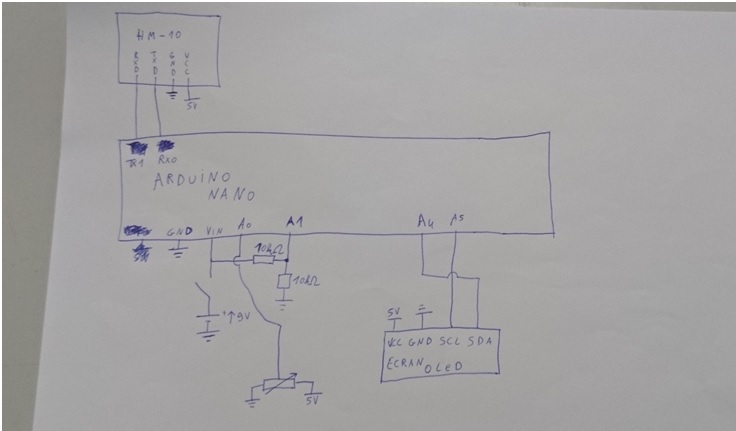 HM-10
RXD TXD GND VCC
5V
TX1 RX0
ARDUINO
NANO
GND VIN A0 A1 A4 A5
10kΩ
10kΩ
9V
5V
5V
VCC GND SCL SDA
ECRAN OLED